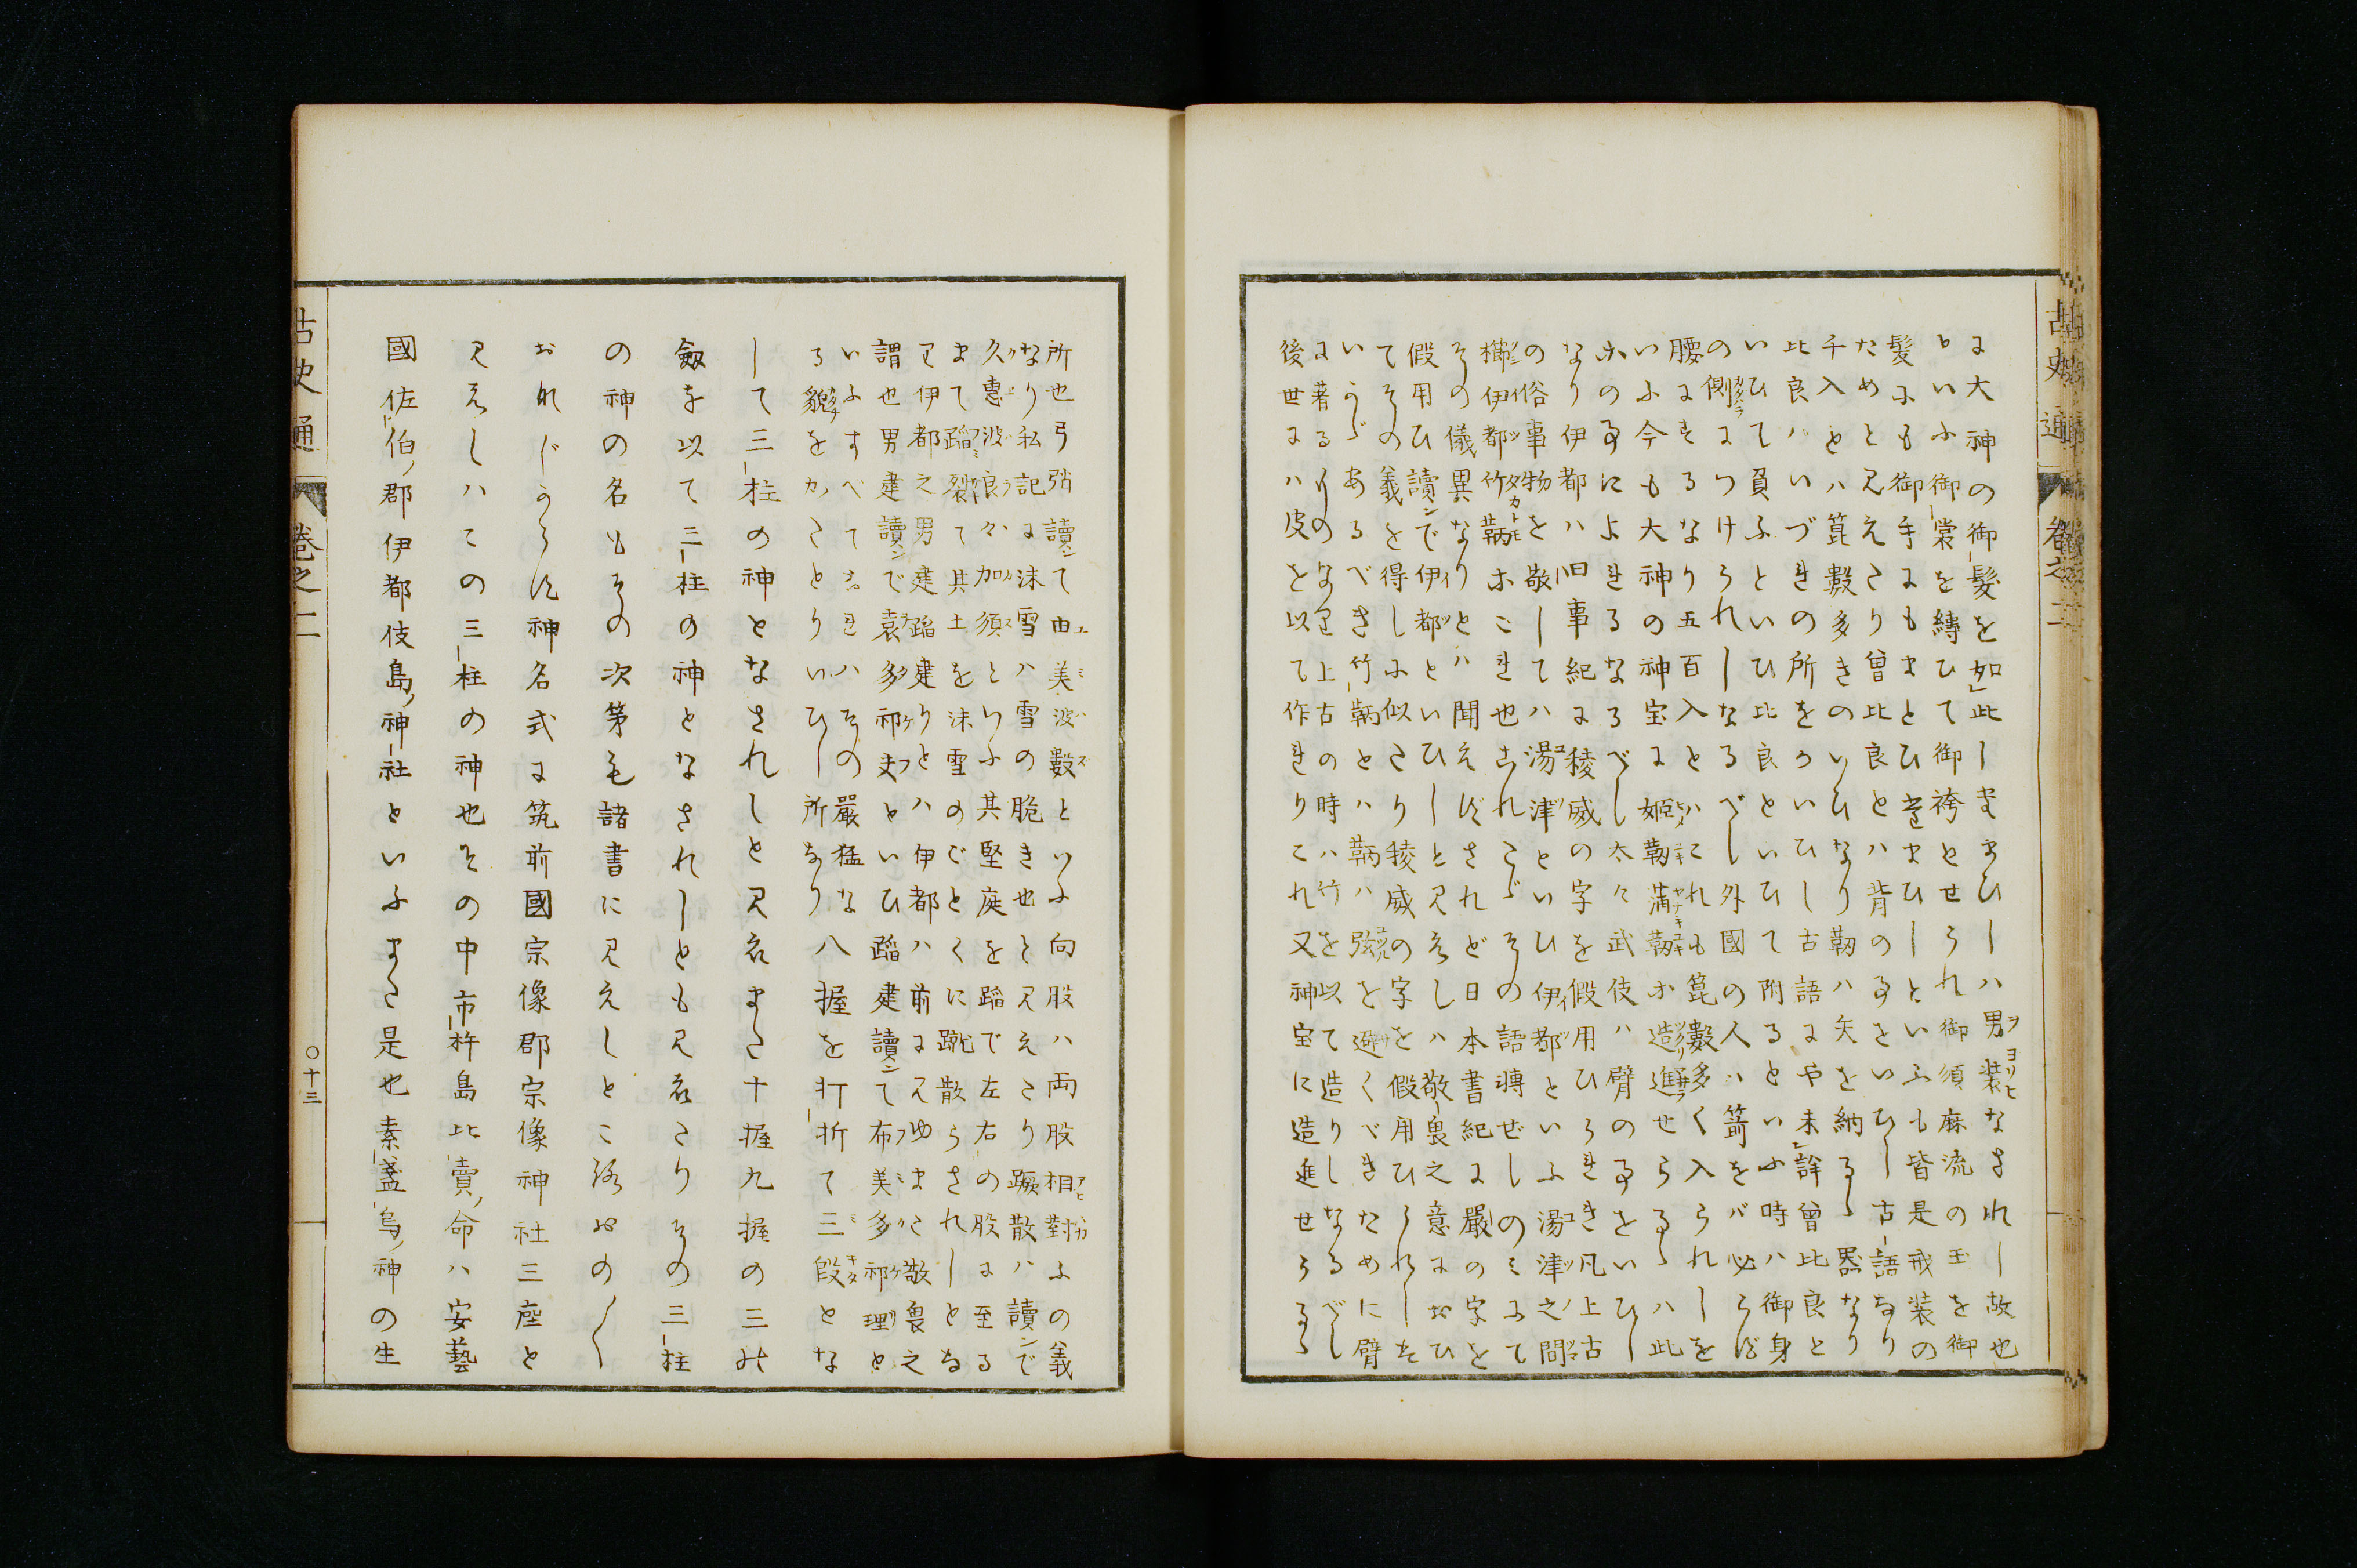 に大神の御髪を如此しまあひしハ男装なされし故也
といふ御裳を縛ひて御袴とせられ御須麻流の玉を御
髪にも御手にもまとひ室まひしといふも皆是戎装の
ためと見えたり曾比良とハ背のあをいひし古語なり
千入とハ箆数多きのいひなり靭ハ矢を納るゝ器なり
比良ハいづれの所をかいひし古語にや未詳曾比良と
いひて負ふといひ比良といひて附るといふ時ハ御身
の側につけられしなるべし外國の人ハ箭をバ必らず
腰にさるなり五百入とハこれも箆数多く入られしを
いふ今も大神の神宝に姫靭満靭ホ造進せらるゝハ此
ホの事によれるなるべし太々武伎ハ臂の事をいひし
なり伊都ハ旧事紀に稜威の字を假用ひられき凡上古
の俗事物を敬してハ湯津といひ伊都といふ湯津之間
櫛伊都竹鞆ホこれ也されこゞその語轉ぜしのミにて
その儀異なりとハ聞えずされど日本書紀に嚴の字を
假用ひ讀で伊都といひしと見えしハ敬畏之意におひ
てその義を得しに似たり稜威の字を假用ひられしは
いうゞあるべき竹鞆とハ鞆ハ弦を避くべきために臂
に著るものなり上古の時ハ竹を以て造りしなるべし
後世にハ皮を以て作れりこれ又神宝に造進せらるゝ
所也弓弰讀て由美波數といふ向股ハ両股相對ふの義
なり私記に沫雪ハ雪の脆き也と見えたり蹶散ハ讀で
久惠波良々加須といふ其堅庭を蹈で左右の股に至る
まて蹈裂て其土を沫雪のごとくに蹴散らされしとな
り伊都之男建蹈建りとハ伊都ハ前に見ゆまた敬畏之
謂也男建讀で袁多祁夫といひ蹈建讀て布美多祁理と
いふすべてこれハその嚴猛な
る貌をかたとりいひし所なり八握を打折て三段とな
して三柱の神となされしと見えまた十握九握の三the
劔を以て三柱の神となされしとも見えたりその三柱
の神の名もその次第も諸書に見えしところおの〱
おなじからず神名式に筑前國宗像郡宗像神社三座と
見えしハこの三柱の神也その中市杵島比賣命ハ安藝
國佐伯郡伊都伎島神社といふまた是也素盞烏神の生
古史通
巻之二
〇十三